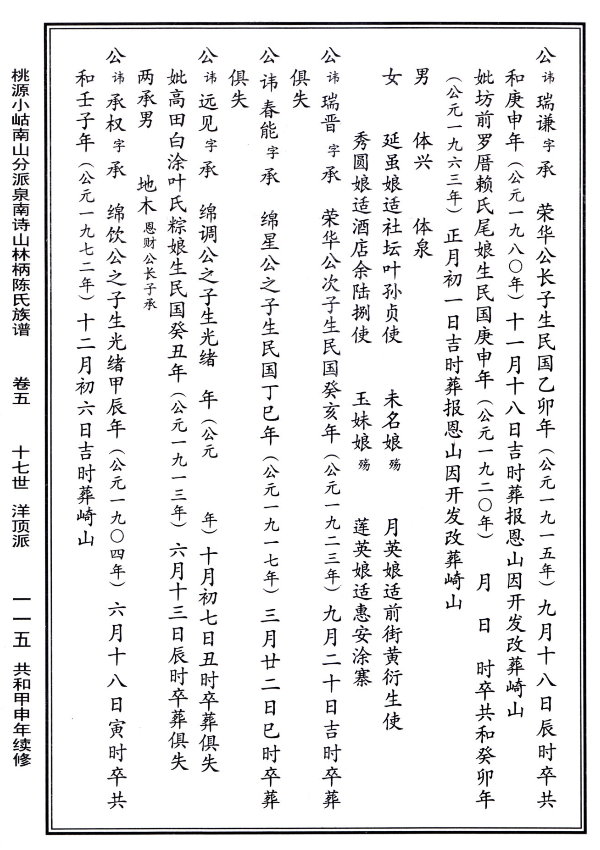 公讳瑞谦字承　荣华公长子生民国乙卯年（公元一九一五年）九月十八日辰时卒共
和庚申年（公元一九八〇年）十一月十八日吉时葬报恩山因开发改葬崎山
妣坊前罗厝赖氏尾娘生民国庚申年（公元一九二〇年）　月　日　时卒共和癸卯年
（公元一九六三年）正月初一日吉时葬报恩山因开发改葬崎山
男　体兴　体泉
女　延虽娘适社坛叶孙贞使　未名娘殇　月英娘适前街黄衍生使
秀圆娘适酒店余陆捌使　玉妹娘殇　莲英娘适惠安涂寨
公讳瑞晋字承　荣华公次子生民国癸亥年（公元一九二三年）九月二十日吉时卒葬
俱失
公讳春能字承　绵星公之子生民国丁巳年（公元一九一七年）三月廿二日巳时卒葬
俱失
公讳远见字承　绵调公之子生光绪　年（公元　年）十月初七日丑时卒葬俱失
妣高田白涂叶氏粽娘生民国癸丑年（公元一九一三年）六月十三日辰时卒葬俱失
两承男　地木恩财公长子承
公讳承权字承　绵饮公之子生光绪甲辰年（公元一九〇四年）六月十八日寅时卒共
和壬子年（公元一九七二年）十二月初六日吉时葬崎山
桃源小岵南山分派泉南诗山林柄陈氏族谱　卷五　十七世　洋顶派　一一五　共和甲申年续修